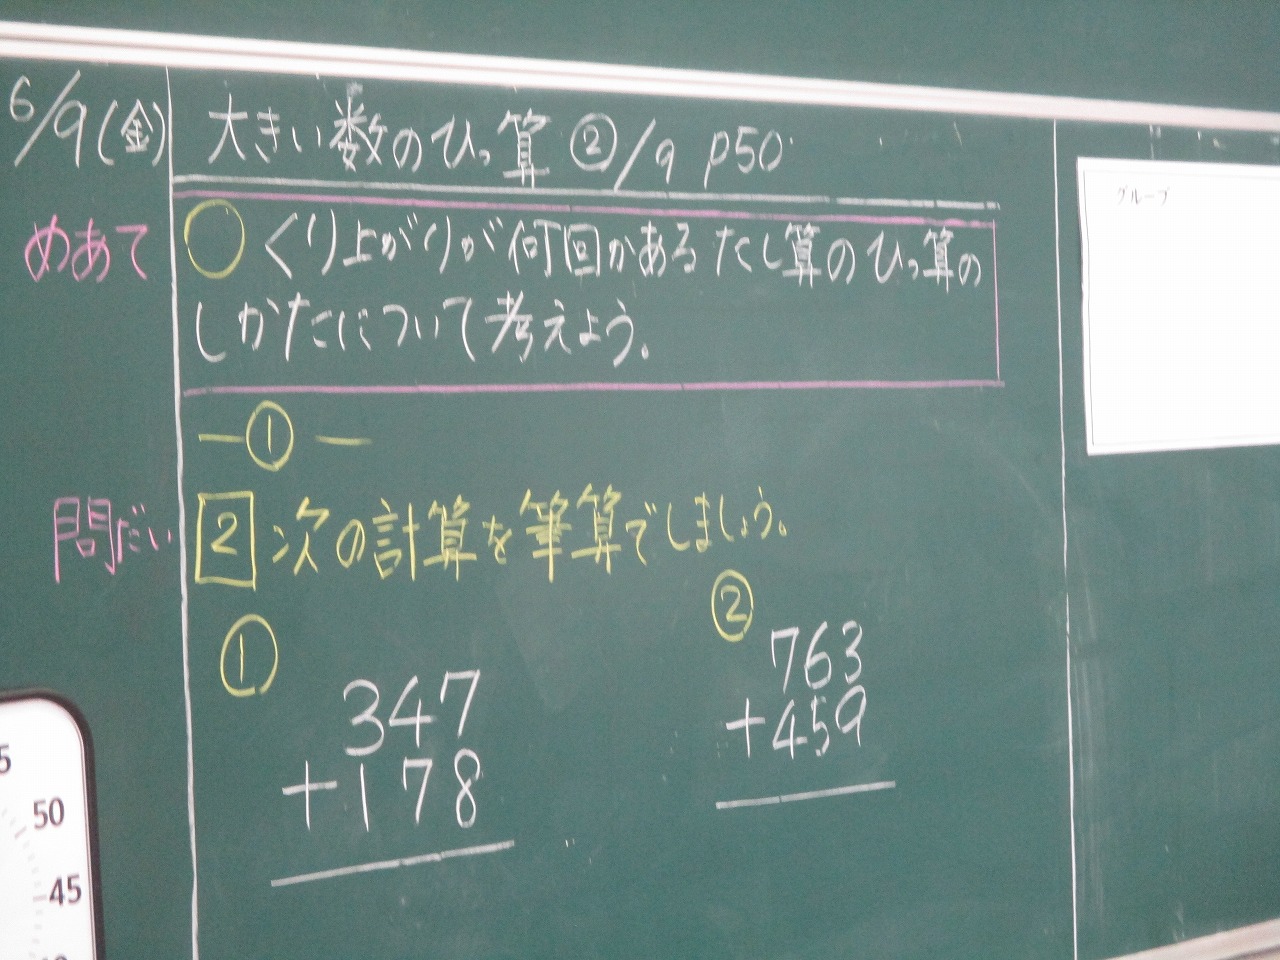 6/9(金)
大きい数のひっ算 ②/9 p50
めあて
くり上がりが何回かあるたし算のひっ算の
しかたについて考えよう。
グループ
―①―
問だい
2 次の計算を筆算でしましょう。
①
347
+178
②
763
+459
5
50
45